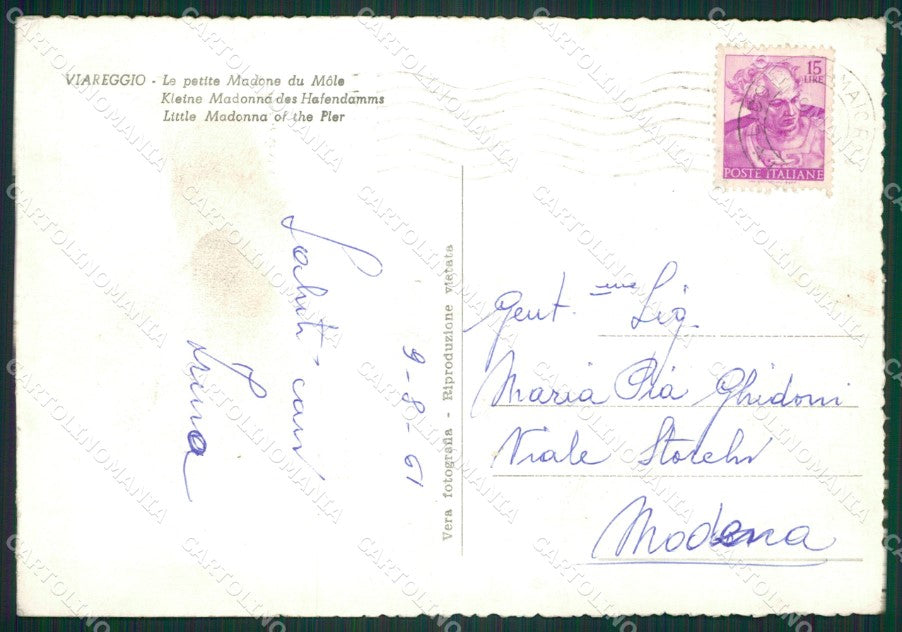 VIAREGGIO - Le petite Madone du Môle
Kleine Madonna des Hafendamms
Little Madonna of the Pier
15
LIRE
POSTE ITALIANE
Saluti cari
9-8-61
Vera fotografia - Riproduzione vietata
Gent.ma Sig.
Maria Pia Ghidoni
Viale Storchi
Modena
CARTOLINOMANIA